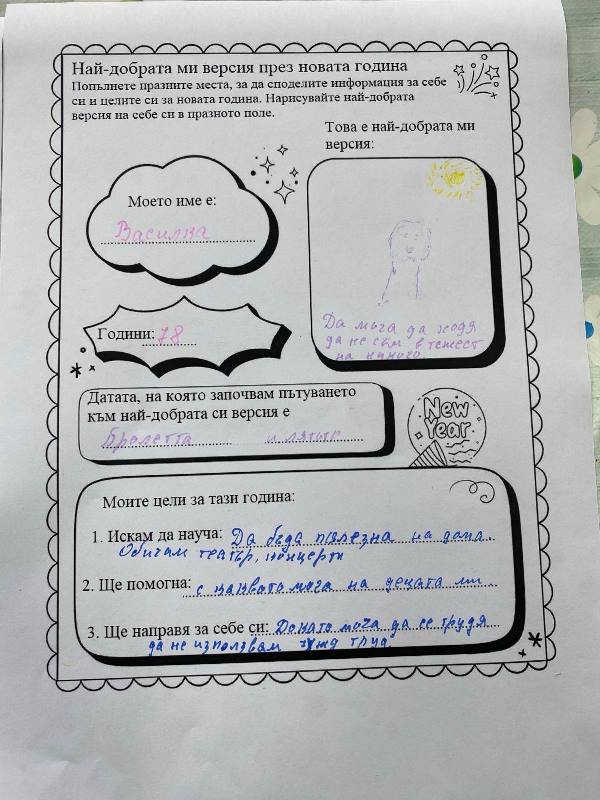 Най-добрата ми версия през новата година
Попълнете празните места, за да споделите информация за себе
си и целите си за новата година. Нарисувайте най-добрата
версия на себе си в празното поле.
Това е най-добрата ми
версия:
Моето име е:
Василка
Години: 78
Да мога да ходя
да не съм в тежест
на никого.
Датата, на която започвам пътуването
към най-добрата си версия е
Пролетта и лятото
New
Year
Моите цели за тази година:
1. Искам да науча: Да бъда полезна на дома.
Обичам театър, концерти
2. Ще помогна: с каквото мога на децата ми
3. Ще направя за себе си: Докато мога да се трудя
да не използвам чужд труд.